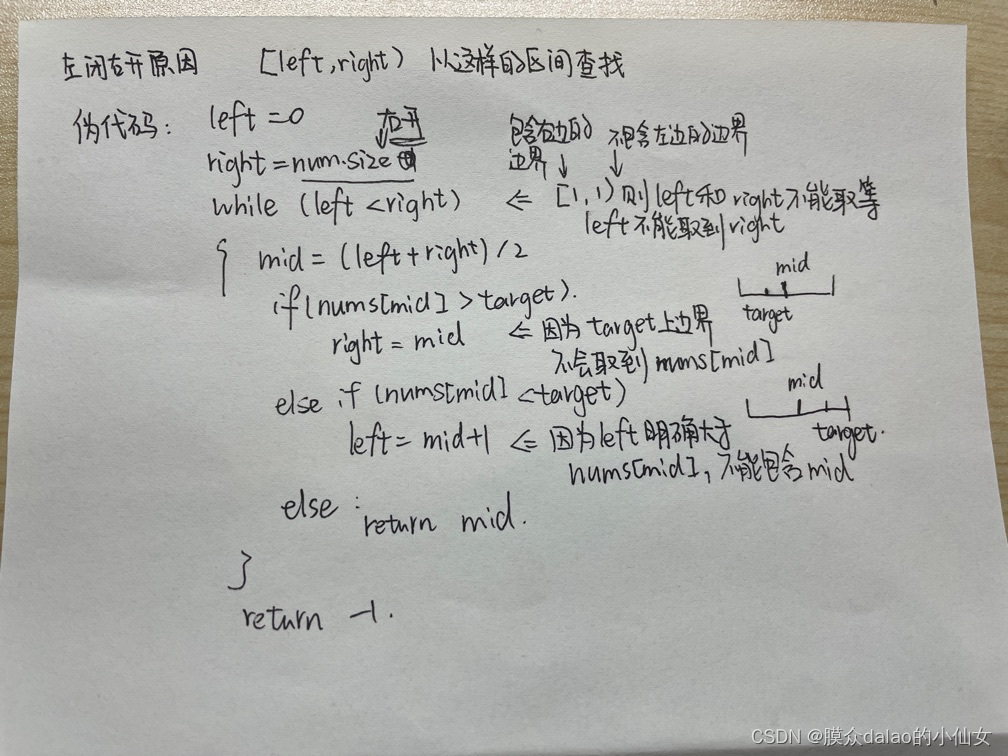 左闭右开原因 [left,right) 以这样的区间查找
伪代码: left=0
右开
right=num.size
包含右边的 不包含左边的边界
边界
while (left<right) ⇐ [1,1) 则left和right不能取等
left不能取到right
{ mid=(left+right)/2
mid
target
if(nums[mid]>target).
right=mid ⇐ 因为target上边界
不会取到nums[mid]
else if (nums[mid]<target)
mid
target.
left=mid+1 ⇐ 因为left明确大于
nums[mid],不能包含mid
else:
return mid.
}
return -1.
CSDN @膜众dalao的小仙女